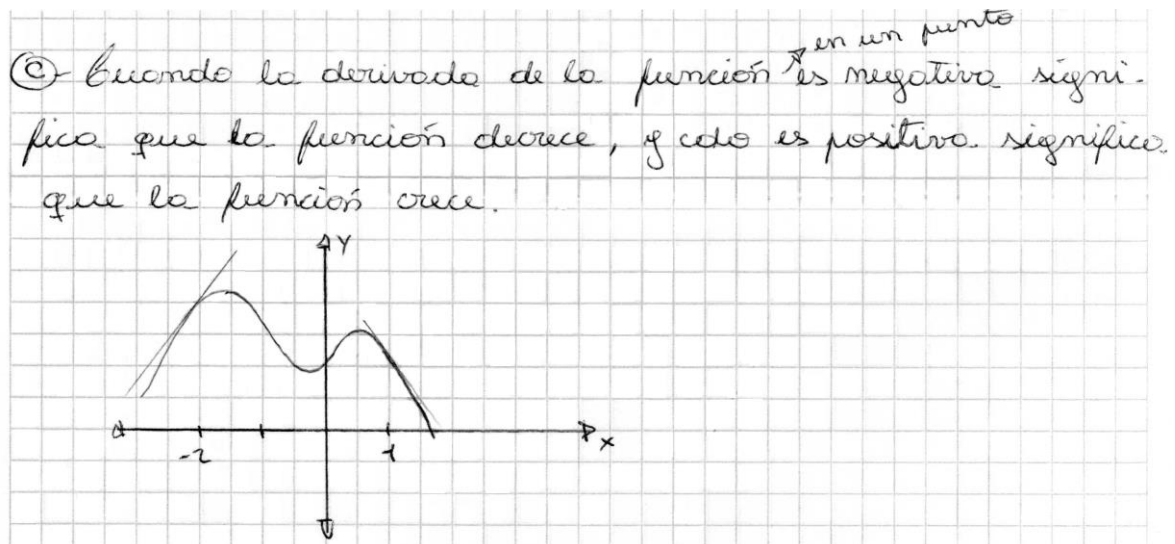 en un punto
c) Cuando la derivada de la función es negativa signi-
fica que la función decrece, y cdo es positiva significa
que la función crece.
Y
-2
1
X